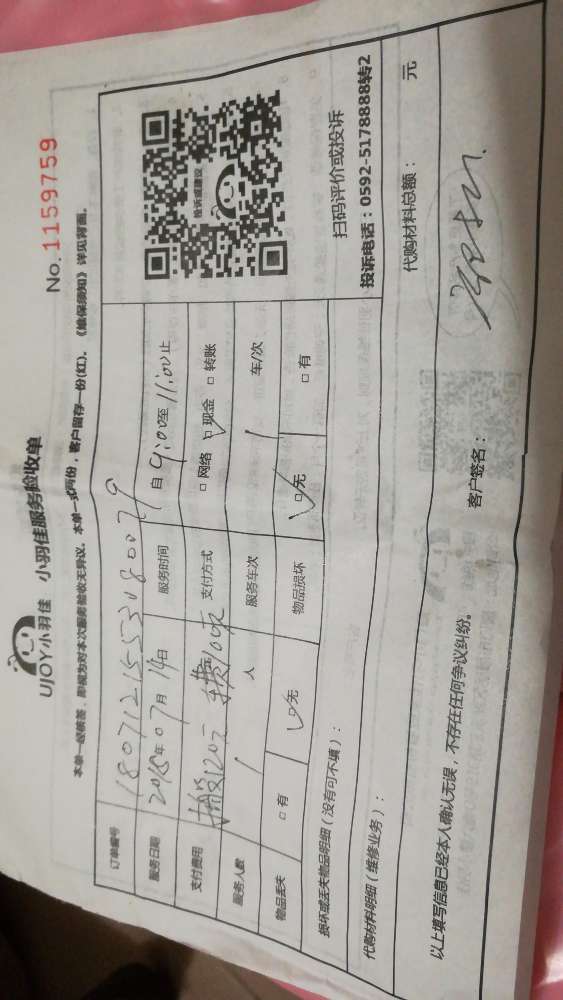 UJOY小羽佳 小羽佳服务验收单
No. 1159759
本单一经核签，即视为对本次服务验收无异议。本单一式两份，客户留存一份(红)。《维保须知》详见背面。
订单编号 1807121553080079
服务日期 2018年07月14日 服务时间 自9:00至11:00止
支付费用 搬120元 支付方式 □网络 □现金 □转账
服务人数 1人 服务车次 1车/次
物品丢失 □有 □无 物品损坏 □无 □有
投诉或建议
扫码评价或投诉
投诉电话：0592-5178888转2
损坏或丢失物品明细（没有可不填）：
代购材料明细（维修业务）： 代购材料总额： 元
以上填写信息已经本人确认无误，不存在任何争议纠纷。 客户签名：